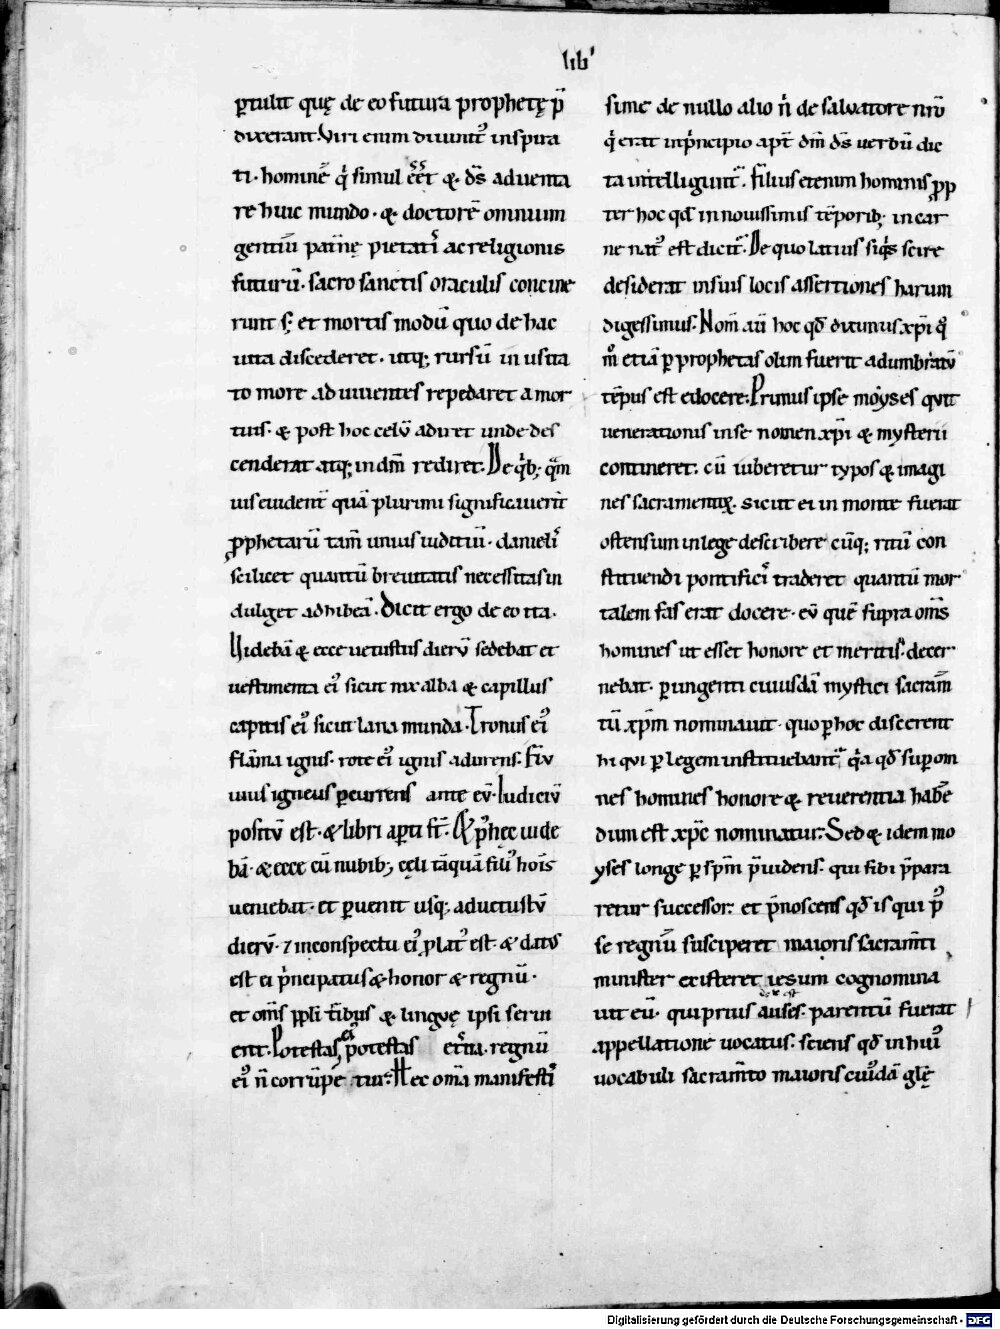 lib'
ptulit quę de eo futura prophetę p̄
dixerant. Viri enim diuinit᷒ inspira
ti. hominē q̇ simul eēt & d̄s aduenta
re huic mundo. & doctorē omnium
gentiū patrię pietatis ac religionis
futurū. sacro sanctis oraculis concine
runt s; et mortis modū quo de hac
uita discederet. utq; rursū in usita
to more ad uiuentes repedaret a mor
tuis. & post hoc celū adiret unde des
cenderat atq; in dm̄ rediret. De qib; qm̄
uis euident̄ quā plurimi significauerīt
pphetarū tam̄ unius iuditiū. danielis
scilicet quantū breuitatis necessitas in
dulget adhibeā. Dicit ergo de eo ita.
Videbā & ecce uetustus dierū sedebat et
uestimenta ei᷒ sicut nix alba & capillus
capitis ei᷒ sicut lana munda. Tronus ei᷒
flāma ignis. rote ei᷒ ignis adurens. Flu
uius igneus pcurrens ante eū. Iudiciū
positū est. & libri apti st̄. & p᷒ hęc uide
bā. & ecce cū nubib; cęli tāquā fili᷒ hois
ueniebat. et puenit usq; ad uetustū
dierū. 7 inconspectu ei᷒ plat᷒ est. & datus
est ei p̄ncipatus & honor & regnū.
et om̄s ppli t̄bus & linguę ipsi serui
ent. Potestas ei᷒ potestas et̄na. regnū
ei᷒ n̄ corrūpetur. Hec om̄a manifesti
sime de nullo alio n̄ de saluatore nrō
q̇ erat inp̄ncipio apt̄ dm̄ d̄s uerbū dic
ta intelligunt̄. Filius etenim hominis pp
ter hoc qd̄ in nouissimis tēporib; in car
ne nat᷒ est dicit̄. De quo latius siq̄s scire
desiderat in suis locis assertiones harum
digessimus. Nom̄ aū hoc qd̄ dicimus xp̄i q᷒
m᷒ etiā p prophetas olim fuerit adumbratū
tēpus est edocere. Primus ipse moyses quit
uenerationis inse nomen xp̄i & mysterii
contineret. cū iuberetur typos & imagi
nes sacramentoꝝ. sicut ei in monte fuerat
ostensum inlege describere cūq; ritū con
stituendi pontificis traderet quantū mor
talem fas erat docere. eū quē supra om̄s
homines ut esset honore et meritis. decer
nebat. p ungenti cuiusdā mystici sacram̄
tū xp̄m nominauit. quo p hoc discerent
hi qui p legem instituebant̄ q̄a qd̄ sup om
nes homines honore & reuerentia habē
dum est xp̄c nominatur. Sed & idem mo
yses longe p sp̄m p̄uidens. qui sibi p̄para
retur successor. et p̄noscens qd̄ is qui p᷒
se regnū susciperet maioris sacram̄ti
minister existeret iesum cognomina
uit eū. qui prius auses. parentū fuerat
appellatione uocatus. sciens qd̄ in hui᷒
uocabuli sacram̄to maioris cui᷒dā glę
Digitalisierung gefördert durch die Deutsche Forschungsgemeinschaft - DFG